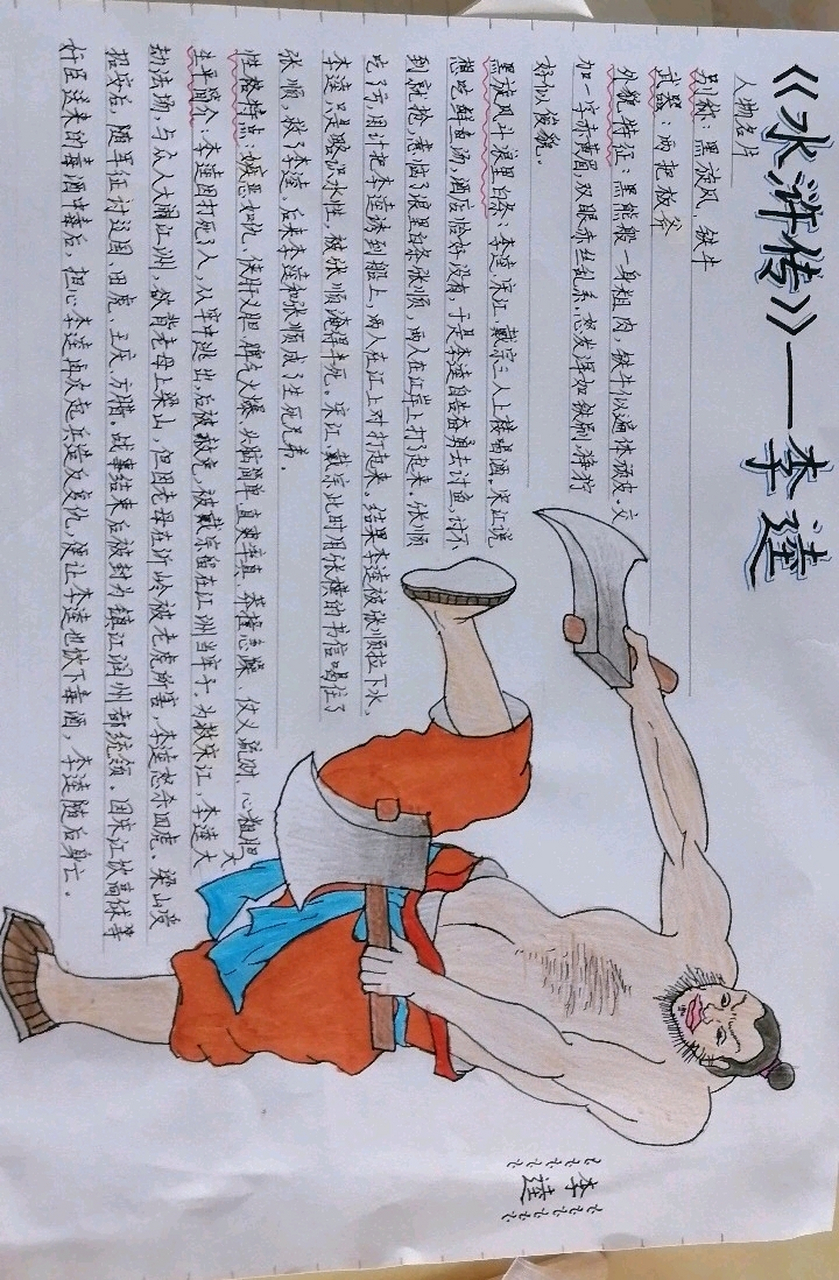 《水浒传》——李逵
人物名片
别称：黑旋风、铁牛
武器：两把板斧
外貌特征：黑熊般一身粗肉，铁牛似遍体顽皮。交
加一字赤黄眉，双眼赤丝乱系。怒发浑如铁刷，狰狞
好似狻貌。
黑旋风斗浪里白条：李逵、宋江、戴宗三人上楼喝酒。宋江说
想吃鲜鱼汤，酒店恰好没有，于是李逵自告奋勇去讨鱼，讨不
到就抢，惹恼了浪里白条张顺，两人在江岸上打了起来。张顺
吃了亏，用计把李逵诱到船上，两人在江上对打起来。结果李逵被张顺拉下水，
李逵只是略识水性，被张顺淹得半死。宋江、戴宗此时用张横的书信喝住了
张顺，救了李逵，后来李逵和张顺成了生死兄弟。
性格特点：嫉恶如仇、侠肝义胆、脾气火爆、头脑简单、直爽率真、莽撞急躁、仗义疏财、心粗胆大
生平简介：李逵因打死了人，从军中逃出，后被赦免，被戴宗留在江洲当军子。为救宋江，李逵大
劫法场，与众人大闹江洲，欲背老母上梁山，但因老母在沂岭被老虎所害，李逵怒杀四虎。梁山受
招安后，随军征讨辽国、田虎、王庆、方腊。战事结束后被封为镇江润州都统领。因宋江饮高俅等
奸臣送来的毒酒中毒后，担心李逵再次起兵造反复仇，便让李逵也饮下毒酒，李逵随后身亡。
李逵